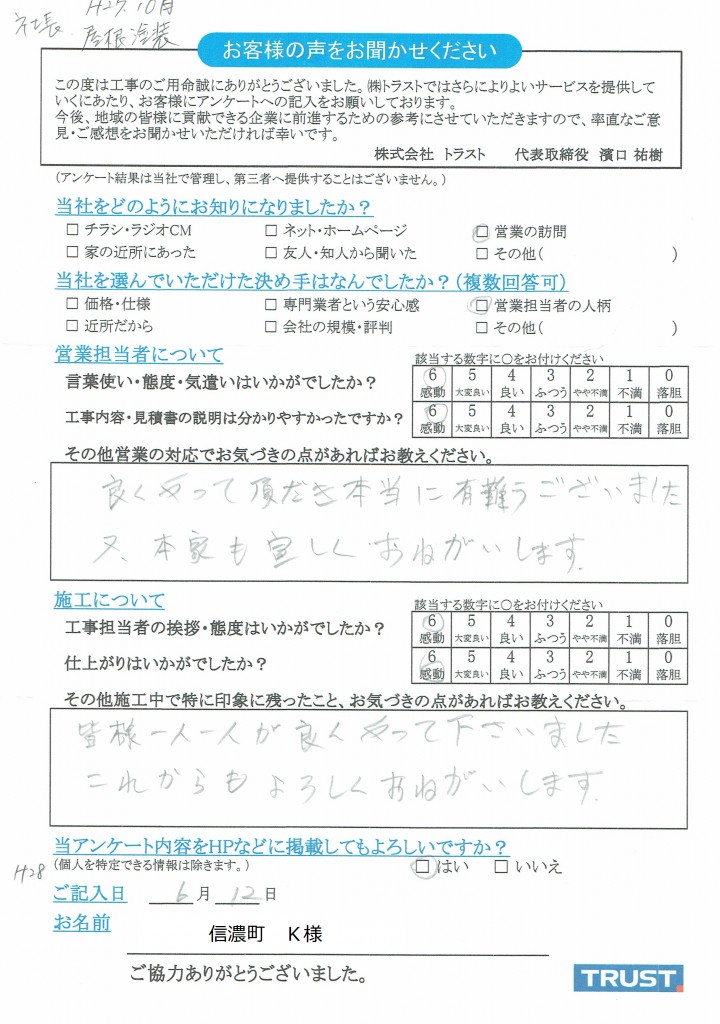 社長
H27.10月
屋根塗装
お客様の声をお聞かせください
この度は工事のご用命誠にありがとうございました。㈱トラストではさらによりよいサービスを提供して
いくにあたり、お客様にアンケートへの記入をお願いしております。
今後、地域の皆様に貢献できる企業に前進するための参考にさせていただきますので、率直なご意
見・ご感想をお聞かせいただければ幸いです。
株式会社 トラスト 代表取締役 濱口 祐樹
(アンケート結果は当社で管理し、第三者へ提供することはございません。)
当社をどのようにお知りになりましたか?
□ チラシ・ラジオCM □ ネット・ホームページ □ 営業の訪問
□ 家の近所にあった □ 友人・知人から聞いた □ その他( )
当社を選んでいただけた決め手はなんでしたか?(複数回答可)
□ 価格・仕様 □ 専門業者という安心感 □ 営業担当者の人柄
□ 近所だから □ 会社の規模・評判 □ その他( )
営業担当者について
該当する数字に○をお付けください
言葉使い・態度・気遣いはいかがでしたか?
6 5 4 3 2 1 0
感動 大変良い 良い ふつう やや不満 不満 落胆
工事内容・見積書の説明は分かりやすかったですか?
6 5 4 3 2 1 0
感動 大変良い 良い ふつう やや不満 不満 落胆
その他営業の対応でお気づきの点があればお教えください。
良くやって頂だき本当に有難うございました
又、本家も宜しくおねがいします.
施工について
該当する数字に○をお付けください
工事担当者の挨拶・態度はいかがでしたか?
6 5 4 3 2 1 0
感動 大変良い 良い ふつう やや不満 不満 落胆
仕上がりはいかがでしたか?
6 5 4 3 2 1 0
感動 大変良い 良い ふつう やや不満 不満 落胆
その他施工中で特に印象に残ったこと、お気づきの点があればお教えください。
皆様一人一人が良くやって下さいました
これからもよろしくおねがいします.
当アンケート内容をHPなどに掲載してもよろしいですか?
(個人を特定できる情報は除きます。)
□ はい □ いいえ
H28
ご記入日 6月12日
お名前
信濃町 K様
ご協力ありがとうございました。
TRUST.